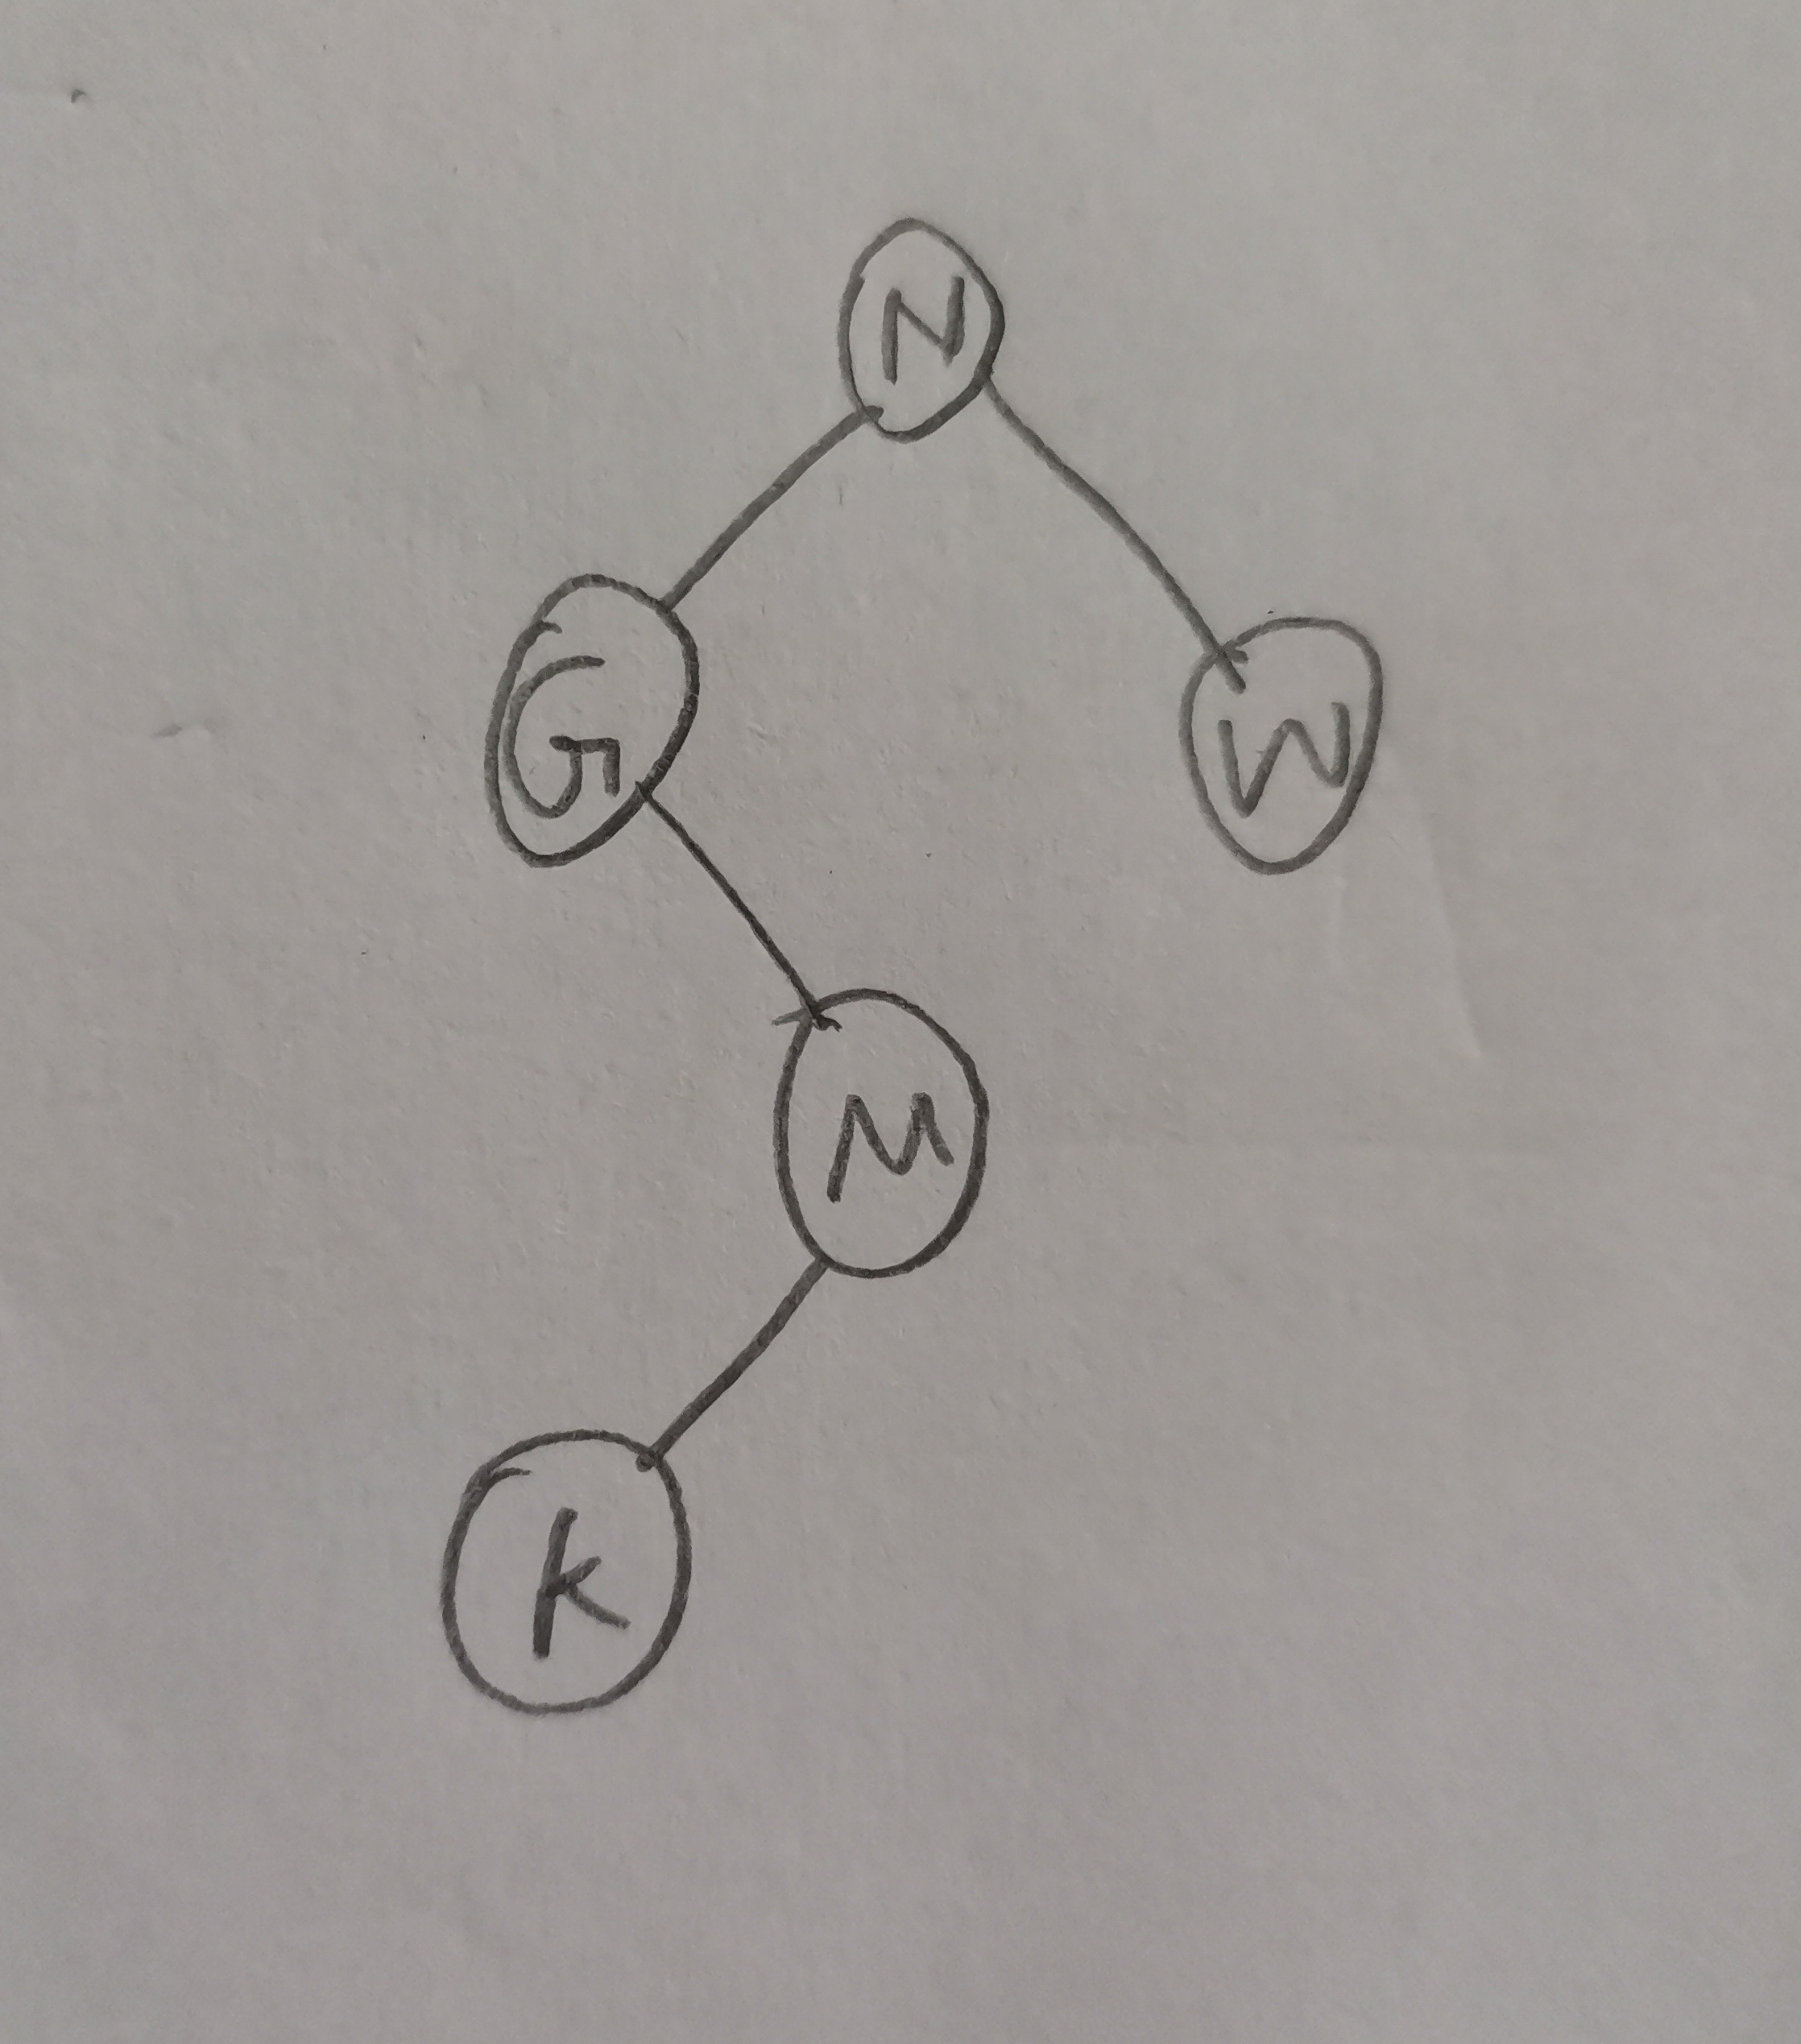 N
G
W
M
k